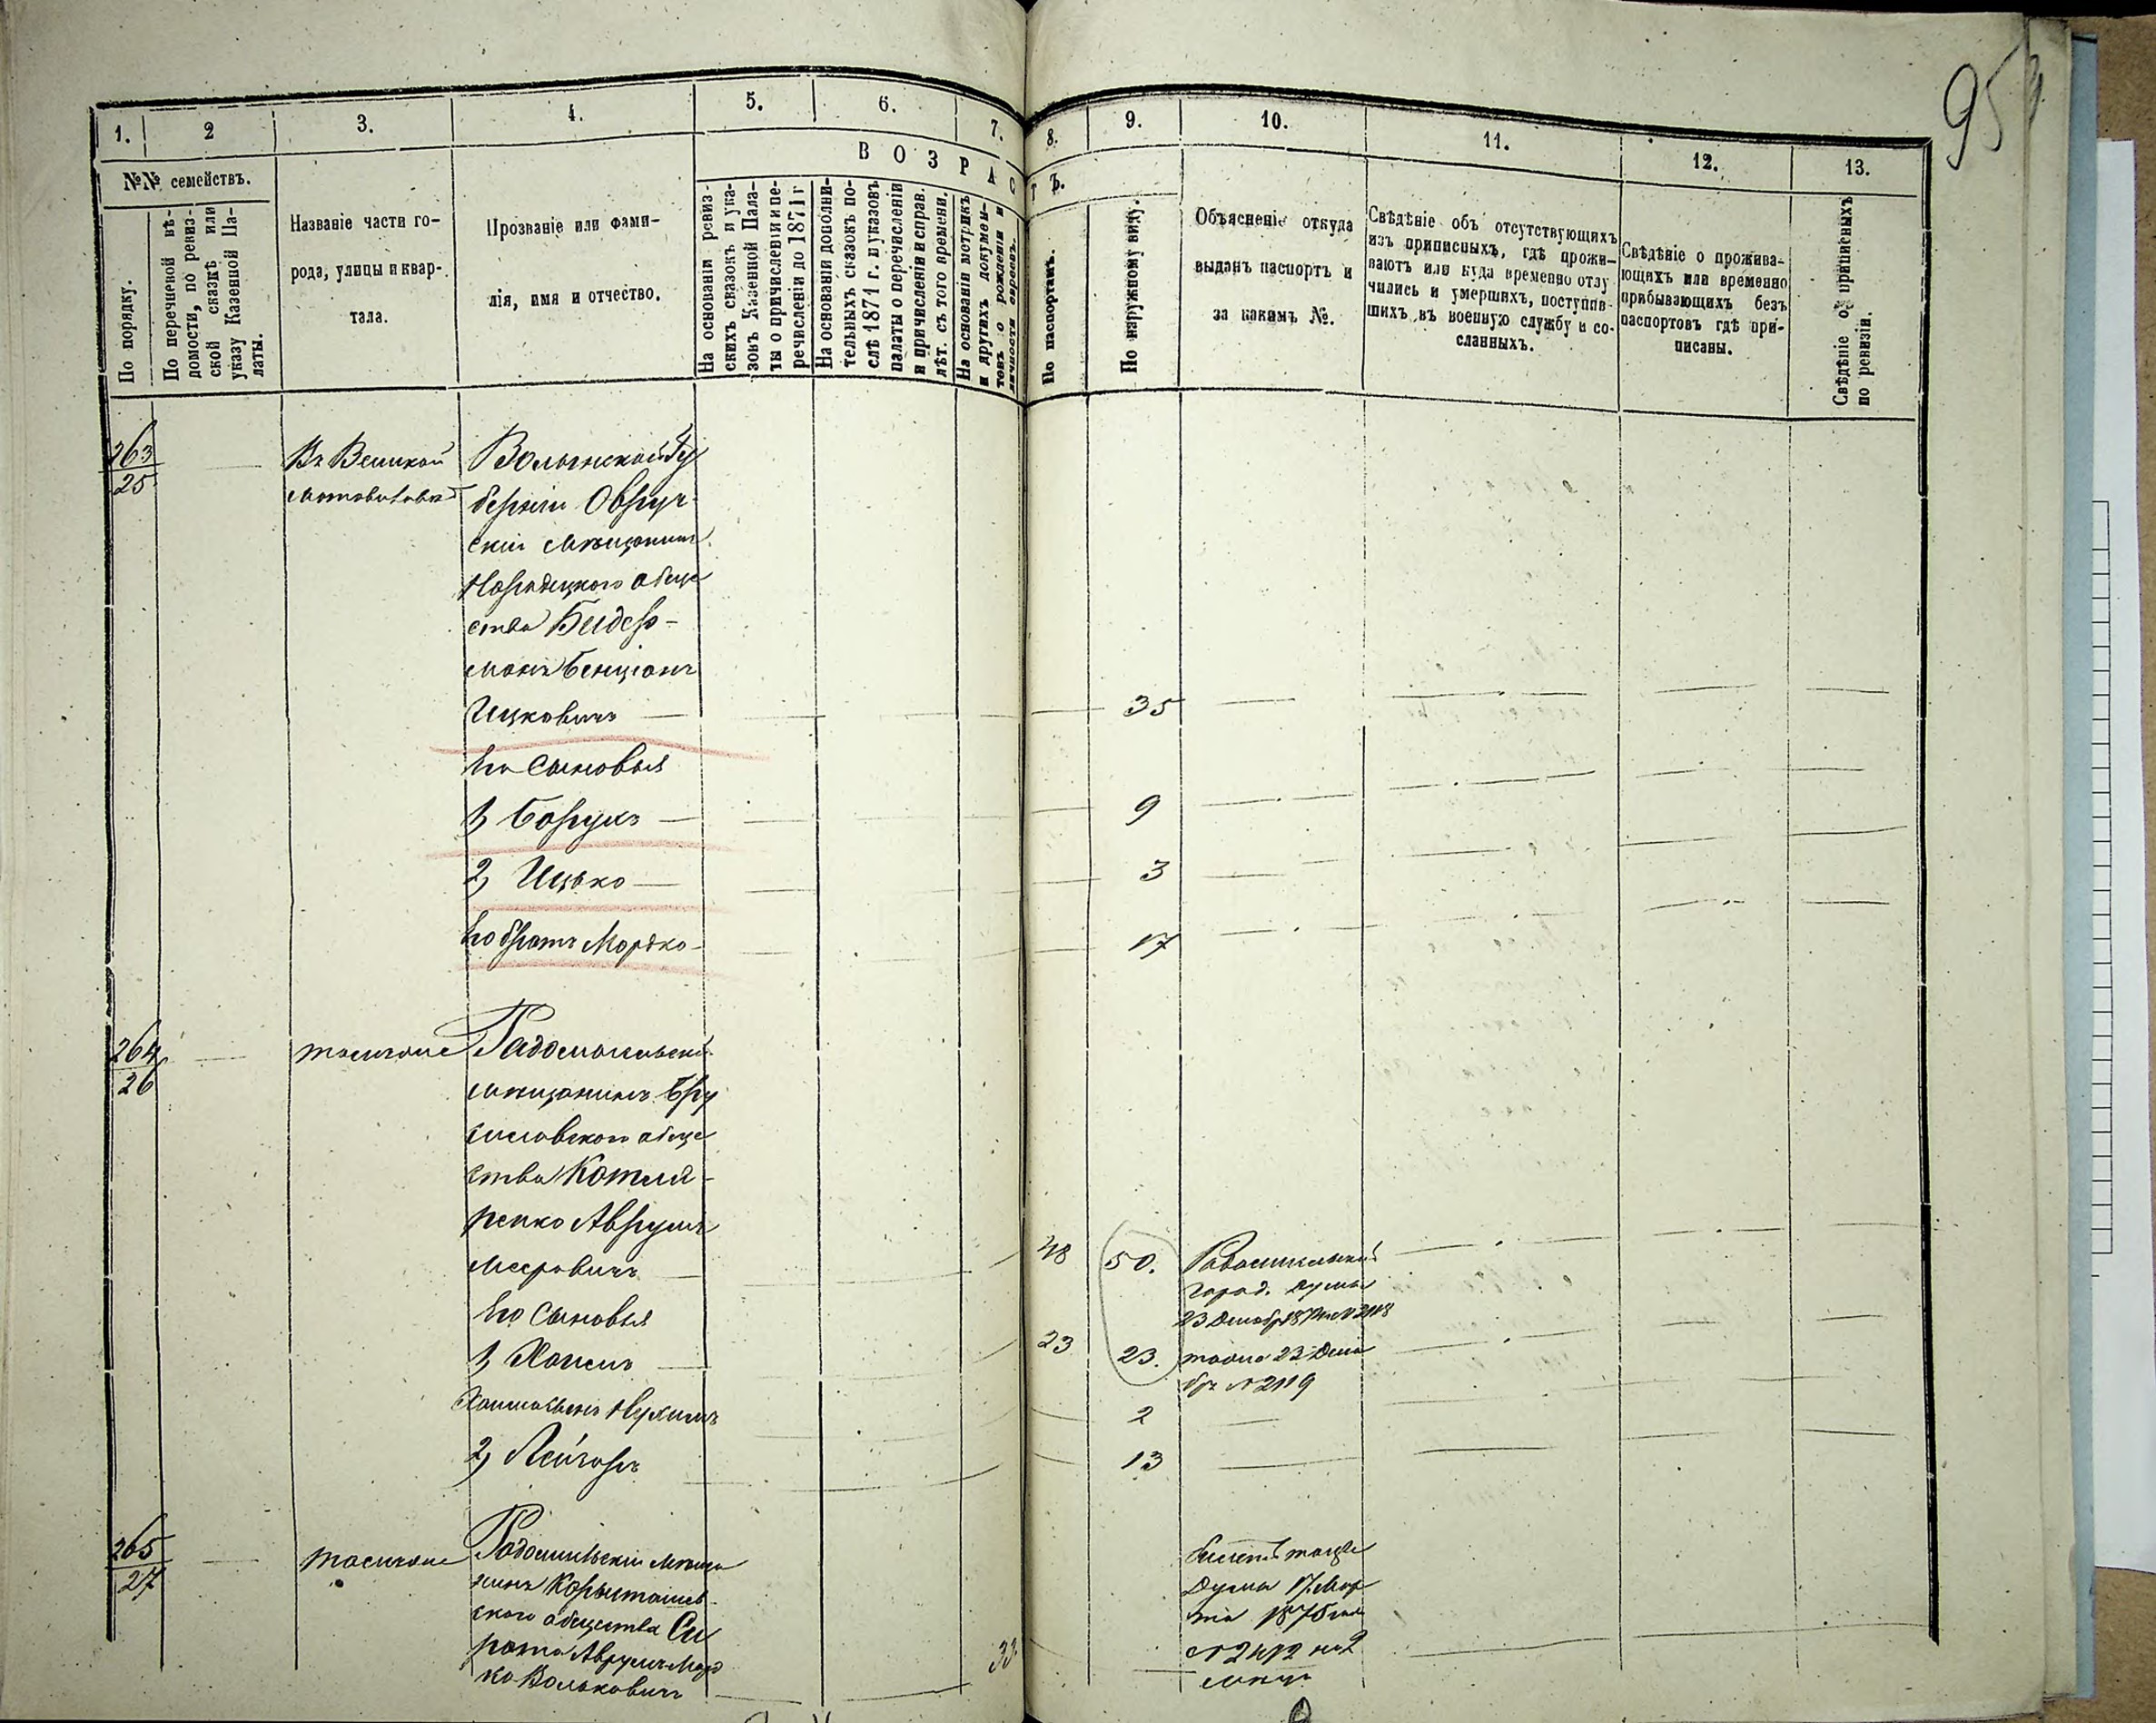 95
1.
2
3.
4.
5.
6.
7.
8.
9.
10.
11.
12.
13.
№№ семействъ.
ВОЗРАСТЪ.
По порядку.
По перечневой вѣ-
домости, по ревиз-
ской сказкѣ или
указу Казенной Па-
латы.
Названіе части го-
рода, улицы и квар-
тала.
Прозваніе или фами-
лія, имя и отчество.
На основаніи ревиз-
скихъ сказокъ и ука-
зовъ Казенной Пала-
ты о причисленіи и пе-
речисленіи до 1871 г
На основаніи дополни-
тельныхъ сказокъ по-
слѣ 1871 г. и указовъ
палаты о перечисленіи
и причисленіи и справ.
лѣт. съ того времени.
На основаніи метрикъ
и другихъ докумен-
товъ о рожденіи и
личности евреевъ.
По паспортамъ.
По наружному виду.
Объясненіе откуда
выданъ паспортъ и
за какимъ №.
Свѣдѣніе объ отсутствующихъ
изъ приписныхъ, гдѣ прожи-
ваютъ или куда временно отлу
чились и умершихъ, поступив-
шихъ въ военную службу и со-
сланныхъ.
Свѣдѣніе о прожива-
ющихъ или временно
прибывающихъ безъ
паспортовъ гдѣ при-
писаны.
Свѣдѣніе о приписныхъ
по ревизіи.
263
25
Въ Великой
Мотовиловкѣ
Волынской Гу
берніи Овруч-
скій мѣщанинъ
Народицкого обще
ства Бидер-
манъ Бенціонъ
Ицковичъ — 35
Его сыновья
1, Борухъ — 9
2, Ицько — 3
Его братъ Мордко — 17
264
26
тоже
Радомысльскій
мѣщанинъ Бру
силовского обще
ства Котля-
ренко Аврумъ
Мееровичъ — 48 50.
Радомысльской
город. думы
23 Декабр № 2118
Его сыновья
1, Хаимъ — 23 23.
тоже 23 Дека
бря № 2119
Хаима сынъ Нухимъ 2
2, Лейзоръ 13
265
27
тоже
Радомысльскій мѣща
нинъ Коростышев-
ского общества Си
рота Аврумъ Морд
ко Вольковичъ 33
билетъ тойже
Думы 17 Мар
та 1875 года
№ 2412 на 2
мѣс.